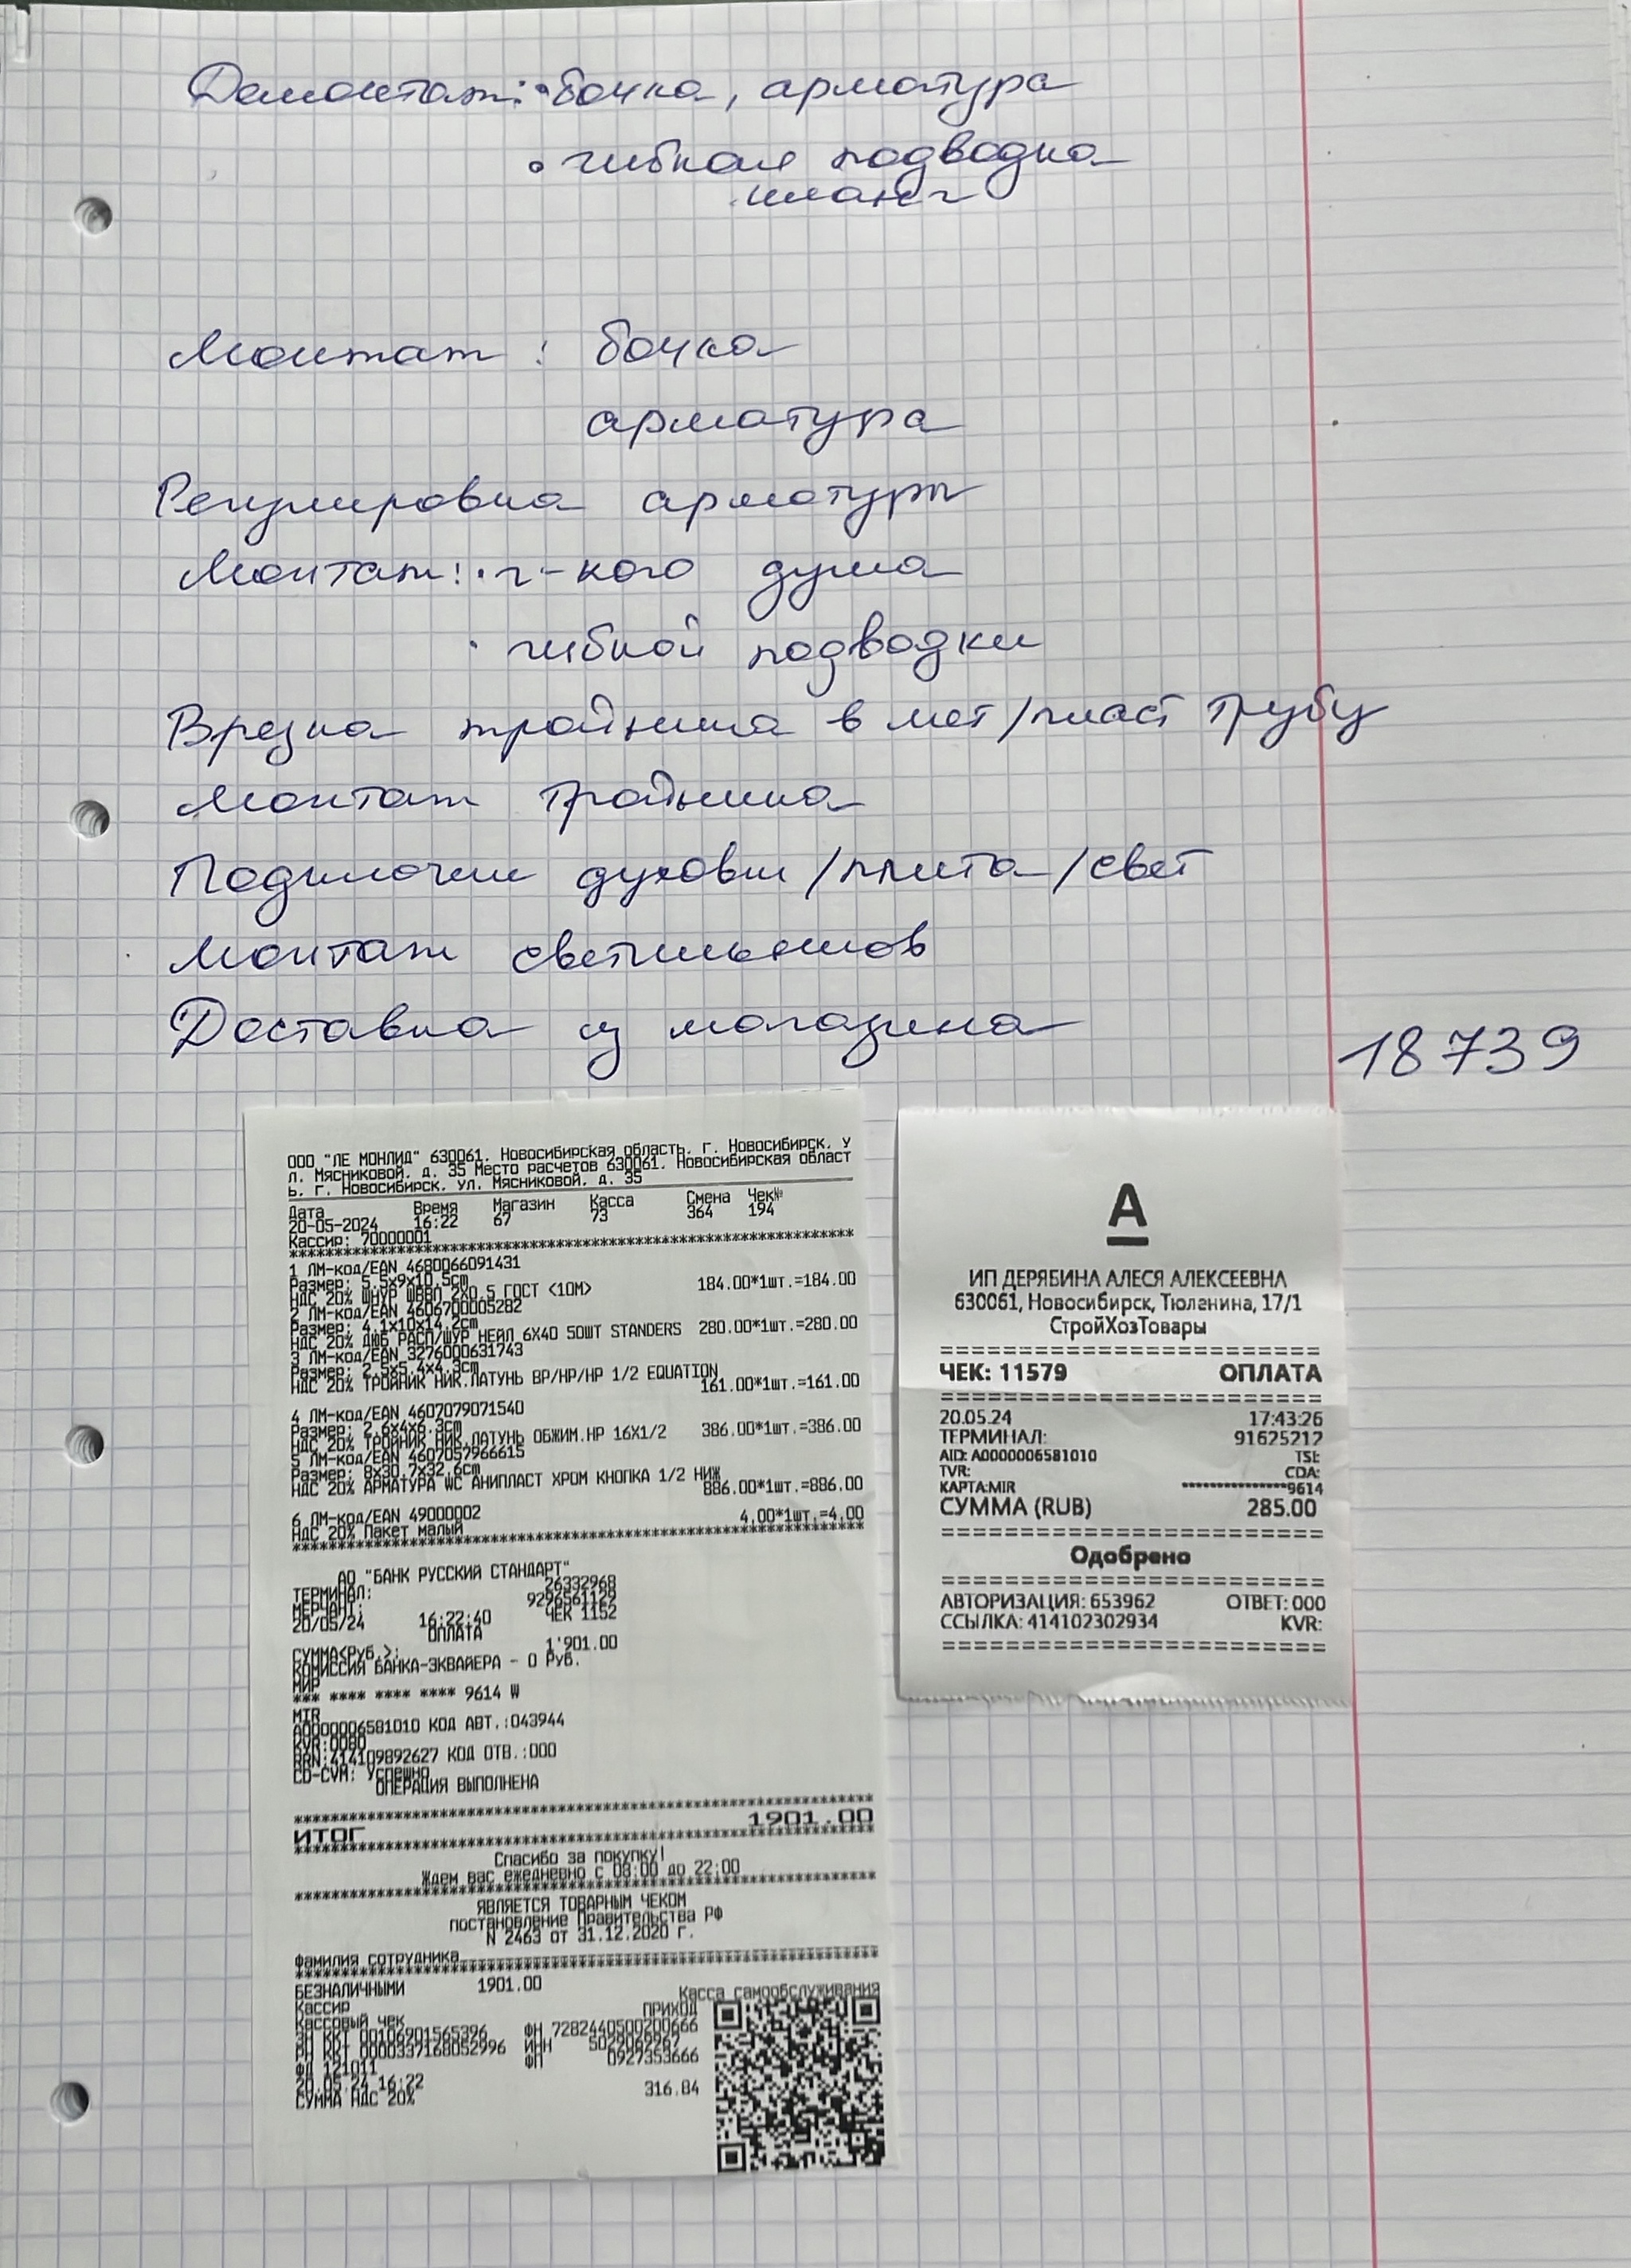 Демонтаж: • бочка, арматура
• гибкая подводка
шланг
Монтаж : бочка
арматура
Регулировка арматуры
Монтаж: • г-кого душа
• гибкой подводки
Врезка тройника в мет/пласт трубу
Монтаж тройника
Подключение духовки /плита /свет
Монтаж светильников
Доставка из магазина
18739
ООО "ЛЕ МОНЛИД" 630061. Новосибирская область. г. Новосибирск. у
л. Мясниковой. д. 35 Место расчетов 630061. Новосибирская област
ь. г. Новосибирск. ул. Мясниковой. д. 35
Дата Время Магазин Касса Смена Чек№
20-05-2024 16:22 67 73 364 194
Кассир: 70000001
*****************************************************************
1 ЛМ-код/EAN 4680066091431
Размер: 5.5x9x10.5cm
НДС 20% ШНУР ШВВП 2X0.5 ГОСТ <10М> 184.00*1шт.=184.00
2 ЛМ-код/EAN 4606700005282
Размер: 4.1x10x14.2cm
НДС 20% ДЮБ РАСП/ШУР НЕЙЛ 6X40 50ШТ STANDERS 280.00*1шт.=280.00
3 ЛМ-код/EAN 3276000631743
Размер: 2.5x5.4x4.3cm
НДС 20% ТРОЙНИК НИК.ЛАТУНЬ ВР/НР/НР 1/2 EQUATION
161.00*1шт.=161.00
4 ЛМ-код/EAN 4607079071540
Размер: 2.6x4x6.3cm
НДС 20% ТРОЙНИК НИК.ЛАТУНЬ ОБЖИМ.НР 16X1/2 386.00*1шт.=386.00
5 ЛМ-код/EAN 4607057966615
Размер: 8x30.7x32.6cm
НДС 20% АРМАТУРА WC АНИПЛАСТ ХРОМ КНОПКА 1/2 НИЖ
886.00*1шт.=886.00
6 ЛМ-код/EAN 49000002
НДС 20% Пакет малый 4.00*1шт.=4.00
*****************************************************************
АО "БАНК РУССКИЙ СТАНДАРТ"
ТЕРМИНАЛ: 26332968
МЕРЧАНТ: 9296561129
20/05/24 16:22:40 ЧЕК 1152
ОПЛАТА
СУММА<Руб.>: 1'901.00
КОМИССИЯ БАНКА-ЭКВАЙЕРА - 0 Руб.
МИР
*** **** **** **** 9614 W
MIR
A0000006581010 КОД АВТ.:043944
KVR:0080
RRN:414109892627 КОД ОТВ.:000
CD-CVM: Успешно
ОПЕРАЦИЯ ВЫПОЛНЕНА
*****************************************************************
ИТОГ 1901.00
*****************************************************************
Спасибо за покупку!
Ждем вас ежедневно с 08:00 до 22:00
*****************************************************************
ЯВЛЯЕТСЯ ТОВАРНЫМ ЧЕКОМ
постановление Правительства РФ
N 2463 от 31.12.2020 г.
Фамилия сотрудника
*****************************************************************
БЕЗНАЛИЧНЫМИ 1901.00
Кассир Касса самообслуживания
Кассовый чек ПРИХОД
ЗН ККТ 00106901565396 ФН 7282440500200666
РН ККТ 0000337168052996 ИНН 5029069967
ФД 121011 ФП 0927353666
20.05.24 16:22
СУММА НДС 20% 316.84
А
ИП ДЕРЯБИНА АЛЕСЯ АЛЕКСЕЕВНА
630061, Новосибирск, Тюленина, 17/1
СтройХозТовары
==============================
ЧЕК: 11579 ОПЛАТА
==============================
20.05.24 17:43:26
ТЕРМИНАЛ: 91625212
AID: A0000006581010 TSI:
TVR: CDA:
КАРТА:MIR ***************9614
СУММА (RUB) 285.00
==============================
Одобрено
==============================
АВТОРИЗАЦИЯ: 653962 ОТВЕТ: 000
ССЫЛКА: 414102302934 KVR:
==============================